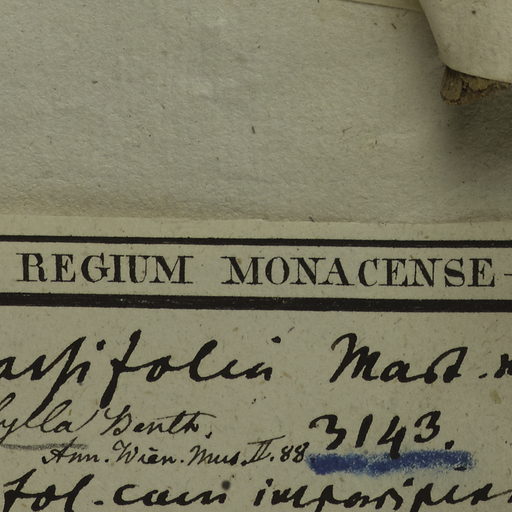 REGIUM MONACENSE
assifolia Mart.
ylla Benth. 3143.
Ann. Wien. Mus. II. 88
fol. cum